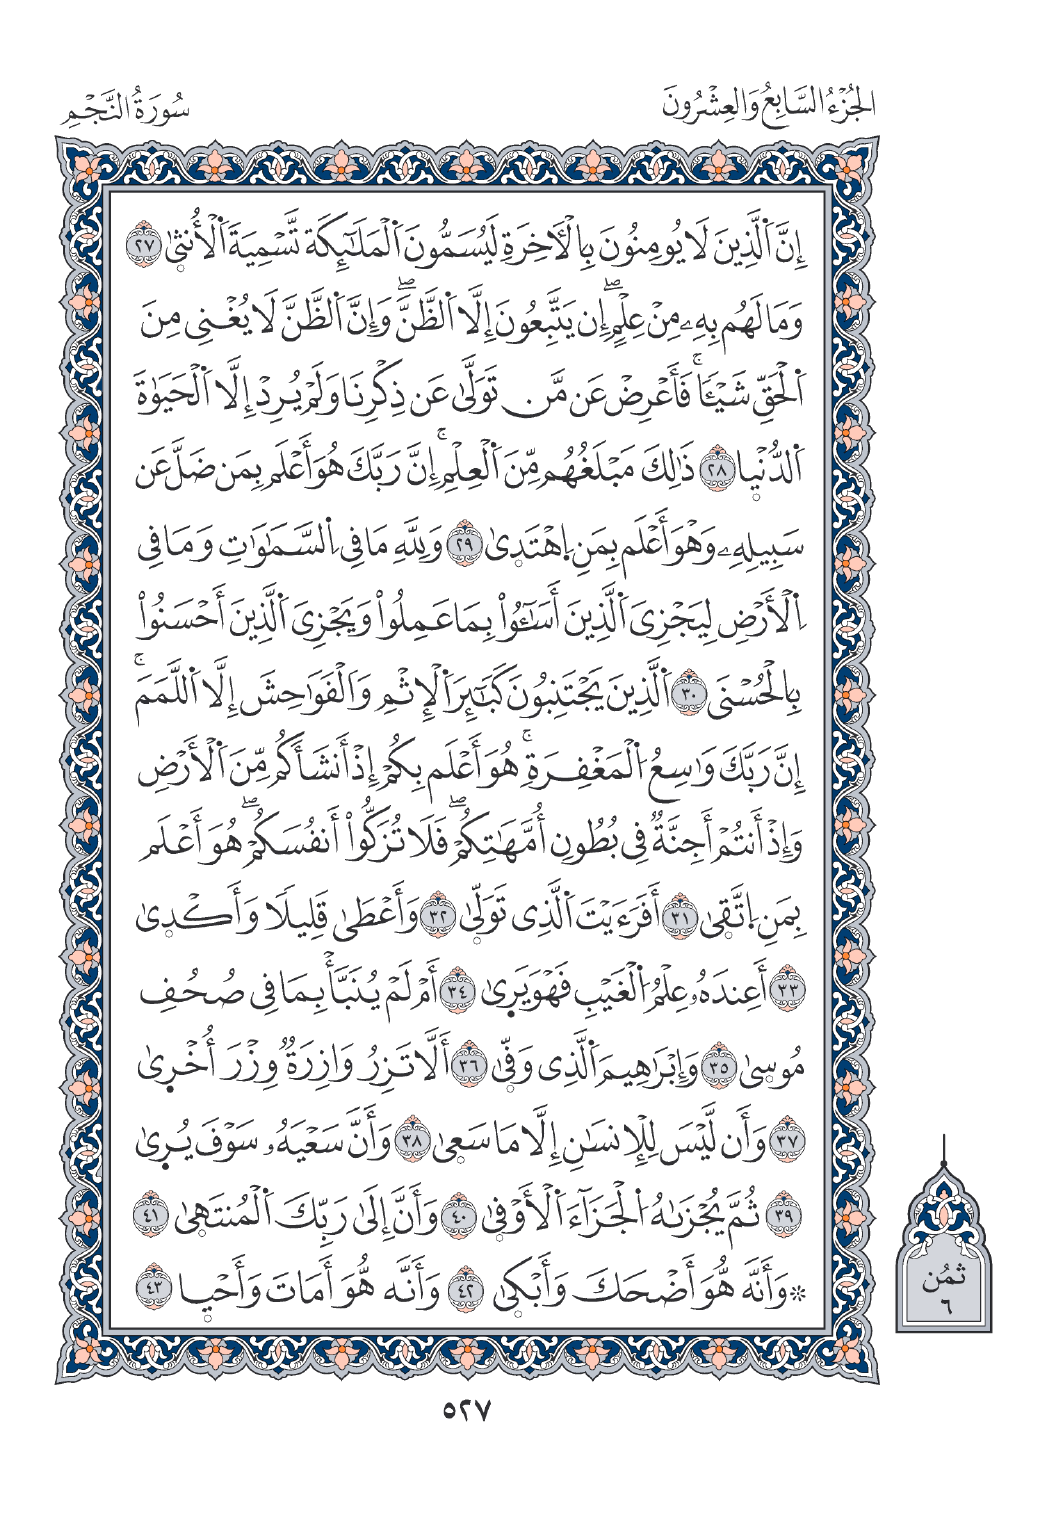 الجُزْءُ السَّابِعُ وَالعِشْرُونَ
سُورَةُ النَّجْمِ
إِنَّ اَ۬لذِينَ لَا يُومِنُونَ بِالْأٓخِرَةِ لَيُسَمُّونَ اَ۬لْمَلَٰٓئِكَة تَّسْمِيَةَ اَ۬لْأُنثۭيٰ ٢٧
وَمَا لَهُم بِهِۦ مِنْ عِلْمٍۖ إِن يَتَّبِعُونَ إِلَّا اَ۬لظَّنَّۖ وَإِنَّ اَ۬لظَّنَّ لَا يُغْنِي مِنَ
اَ۬لْحَقِّ شَيْـٔٗاۚ فَأَعْرِضْ عَن مَّن تَوَلَّىٰ عَن ذِكْرِنَا وَلَمْ يُرِدْ إِلَّا اَ۬لْحَيَوٰةَ
اَ۬لدُّنْيۭا ٢٨ ذَٰلِكَ مَبْلَغُهُم مِّنَ اَ۬لْعِلْمِۚ إِنَّ رَبَّكَ هُوَ أَعْلَم بِمَن ضَلَّ عَن
سَبِيلِهِۦ وَهْوَ أَعْلَم بِمَنِ اِ۪هْتَدۭيٰ ٢٩ وَلِلهِ مَا فِي اِ۬لسَّمَٰوَٰتِ وَمَا فِي
اِ۬لْأَرْضِ لِيَجْزِيَ اَ۬لذِينَ أَسَٰٓـُٔواْ بِمَا عَمِلُواْ وَيَجْزِيَ اَ۬لذِينَ أَحْسَنُواْ
بِالْحُسْنَى ٣٠ اَ۬لذِينَ يَجْتَنِبُونَ كَبَٰٓئِرَ اَ۬لْإِثْمِ وَالْفَوَٰحِشَ إِلَّا اَ۬للَّمَمَۚ
إِنَّ رَبَّكَ وَٰسِعُ اُ۬لْمَغْفِرَةِۚ هُوَ أَعْلَم بِكُمْ إِذْ أَنشَأَكُم مِّنَ اَ۬لْأَرْضِ
وَإِذْ أَنتُمْ أَجِنَّةٞ فِي بُطُونِ أُمَّهَٰتِكُمْۖ فَلَا تُزَكُّواْ أَنفُسَكُمْۖ هُوَ أَعْلَم
بِمَنِ اِ۪تَّقۭيٰ ٣١ أَفَرَءَيْتَ اَ۬لذِي تَوَلّۭيٰ ٣٢ وَأَعْطَىٰ قَلِيلٗا وَأَكْدۭيٰ
٣٣ أَعِندَهُۥ عِلْمُ اُ۬لْغَيْبِ فَهْوَ يَرۭيٰ ٣٤ أَمْ لَمْ يُنَبَّأْ بِمَا فِي صُحُفِ
مُوسۭيٰ ٣٥ وَإِبْرَٰهِيمَ اَ۬لذِي وَفّۭيٰ ٣٦ أَلَّا تَزِرُ وَازِرَةٞ وِزْرَ أُخْرۭيٰ
٣٧ وَأَن لَّيْسَ لِلْإِنسَٰنِ إِلَّا مَا سَعۭيٰ ٣٨ وَأَنَّ سَعْيَهُۥ سَوْفَ يُرۭيٰ
٣٩ ثُمَّ يُجْزَىٰهُ اُ۬لْجَزَآءَ اَ۬لْأَوْفۭيٰ ٤٠ وَأَنَّ إِلَىٰ رَبِّكَ اَ۬لْمُنتَهۭيٰ ٤١
۞ وَأَنَّه هُّوَ أَضْحَكَ وَأَبْكۭيٰ ٤٢ وَأَنَّه هُّوَ أَمَاتَ وَأَحْيۭا ٤٣
ثُمُن
٦
٥٢٧